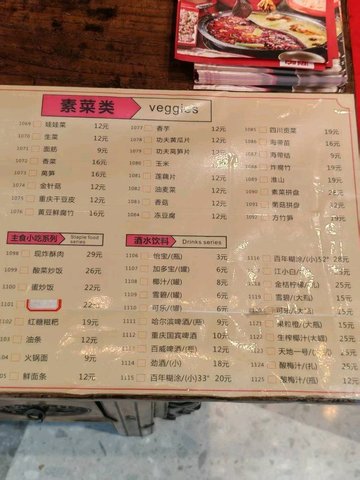 素菜类 veggies
1069 娃娃菜 12元
1070 生菜 12元
1071 面筋 9元
1072 香菜 16元
1073 莴笋 16元
1074 金针菇 12元
1075 重庆干豆皮 12元
1076 黄豆鲜腐竹 16元
1077 香芋 12元
1078 功夫黄瓜片 12元
1079 功夫莴笋片 12元
1080 玉米 12元
1081 莲藕片 12元
1082 油麦菜 12元
1083 香菇 12元
1084 冻豆腐 12元
1085 四川贡菜 19元
1086 海带苗 16元
1087 海带结 9元
1088 炸腐竹 19元
1089 淮山 19元
1090 素菜拼盘 28元
1091 菌菇拼盘 29元
1092 方竹笋 19元
主食小吃系列 Staple food series
1098 现炸酥肉 29元
1099 酸菜炒饭 26元
1100 蛋炒饭 22元
1101 22元
1102 红糖糍粑 19元
1103 油条 12元
火锅面 9元
鲜面条 12元
酒水饮料 Drinks series
1106 怡宝/(瓶) 3元
1107 加多宝/(罐) 6元
1108 椰汁/(罐) 8元
1109 雪碧/(罐) 6元
1110 可乐/(罐) 6元
1111 哈尔滨啤酒/(瓶) 9元
1112 重庆国宾啤酒 12元
1113 百威啤酒/(瓶) 12元
1114 劲酒/(小) 18元
1115 百年糊涂/(小)33° 20元
1116 百年糊涂/(小)52° 28元
江小白/ 25元
1118 金桔柠檬/(扎) 25元
1119 雪碧/(大瓶) 15元
可乐/(大瓶) 15元
1121 果粒橙/(大瓶) 15元
1122 生榨椰汁/(大罐) 25元
1123 天地一号/(瓶) 15元
1124 酸梅汁/(扎) 25元
1125 酸梅汁/(瓶) 12元